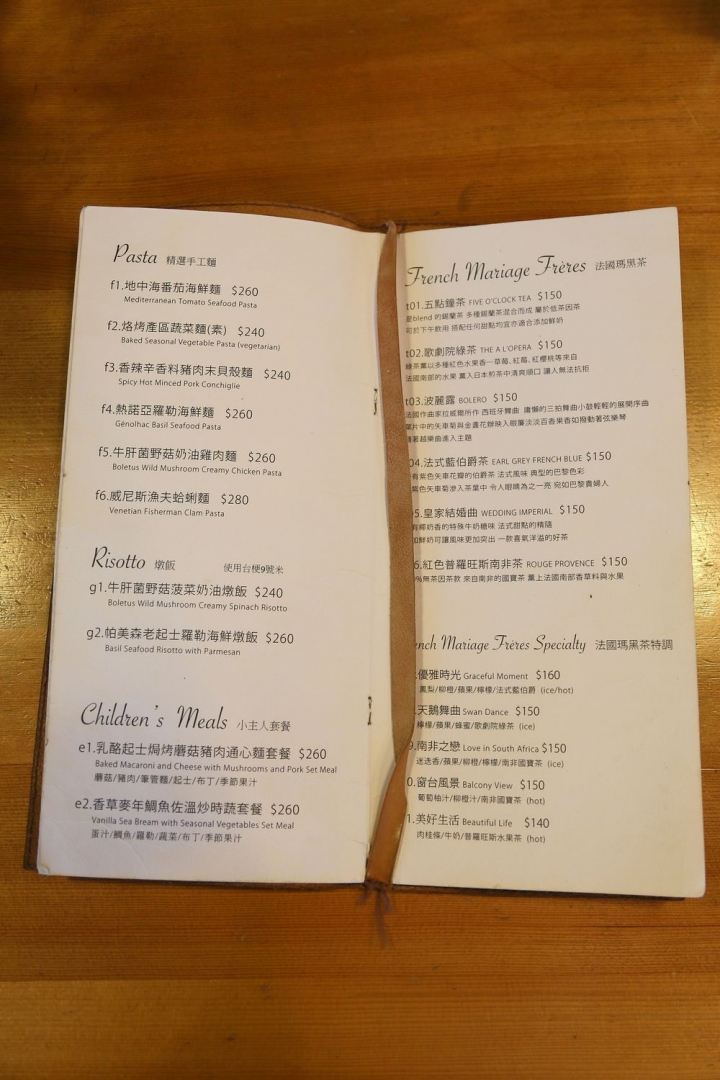 Pasta 精選手工麵
f1.地中海番茄海鮮麵 $260
Mediterranean Tomato Seafood Pasta
f2.烙烤產區蔬菜麵(素) $240
Baked Seasonal Vegetable Pasta (vegetarian)
f3.香辣辛香料豬肉末貝殼麵 $240
Spicy Hot Minced Pork Conchiglie
f4.熱諾亞羅勒海鮮麵 $260
Génolhac Basil Seafood Pasta
f5.牛肝菌野菇奶油雞肉麵 $260
Boletus Wild Mushroom Creamy Chicken Pasta
f6.威尼斯漁夫蛤蜊麵 $280
Venetian Fisherman Clam Pasta
Risotto 燉飯 使用台梗9號米
g1.牛肝菌野菇菠菜奶油燉飯 $240
Boletus Wild Mushroom Creamy Spinach Risotto
g2.帕美森老起士羅勒海鮮燉飯 $260
Basil Seafood Risotto with Parmesan
Children's Meals 小主人套餐
e1.乳酪起士焗烤蘑菇豬肉通心麵套餐 $260
Baked Macaroni and Cheese with Mushrooms and Pork Set Meal
蘑菇/豬肉/筆管麵/起士/布丁/季節果汁
e2.香草麥年鯛魚佐溫炒時蔬套餐 $260
Vanilla Sea Bream with Seasonal Vegetables Set Meal
蛋汁/鯛魚/羅勒/蔬菜/布丁/季節果汁
French Mariage Frères 法國瑪黑茶
t01.五點鐘茶 FIVE O'CLOCK TEA $150
blend 的錫蘭茶 多種錫蘭茶混合而成 屬於低茶因茶
可於下午飲用 搭配任何甜點均宜亦適合添加鮮奶
t02.歌劇院綠茶 THE A L'OPERA $150
綠茶薰以多種紅色水果香一草莓、紅莓、紅櫻桃等來自
法國南部的水果 薰入日本煎茶中清爽順口 讓人無法抗拒
t03.波麗露 BOLERO $150
法國作曲家拉威爾所作 西班牙舞曲 慵懶的三拍舞曲小鼓輕輕的展開序曲
葉片中的矢車菊與金盞花瓣映入眼簾淡淡百香果香如撥動著弦樂琴
著越樂曲進入主題
04.法式藍伯爵茶 EARL GREY FRENCH BLUE $150
有紫色矢車花瓣的伯爵茶 法式風味 典型的巴黎色彩
紫色矢車菊滲入茶葉中 令人眼睛為之一亮 宛如巴黎貴婦人
05.皇家結婚曲 WEDDING IMPERIAL $150
有椰奶香的特殊牛奶糖味 法式甜點的精隨
加鮮奶可讓風味更加突出 一款喜氣洋溢的好茶
6.紅色普羅旺斯南非茶 ROUGE PROVENCE $150
%無茶因茶款 來自南非的國寶茶 薰上法國南部香草料與水果
ench Mariage Frères Specialty 法國瑪黑茶特調
.優雅時光 Graceful Moment $160
鳳梨/柳橙/蘋果/檸檬/法式藍伯爵 (ice/hot)
.天鵝舞曲 Swan Dance $150
檸檬/蘋果/蜂蜜/歌劇院綠茶 (ice)
9.南非之戀 Love in South Africa $150
迷迭香/蘋果/柳橙/檸檬/南非國寶茶 (ice)
0.窗台風景 Balcony View $150
葡萄柚汁/柳橙汁/南非國寶茶 (hot)
1.美好生活 Beautiful Life $140
肉桂條/牛奶/普羅旺斯水果茶 (hot)